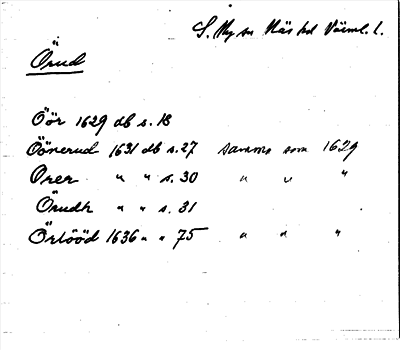 S. Ny sn Näs hd Värml. l.
Örud
Öör 1629 db s. 18
Öönerud 1631 db s. 27 samma som 1629
Örer " " s. 30 " " "
Örudh " " s. 31
Örlööd 1636 " " 75 " " "